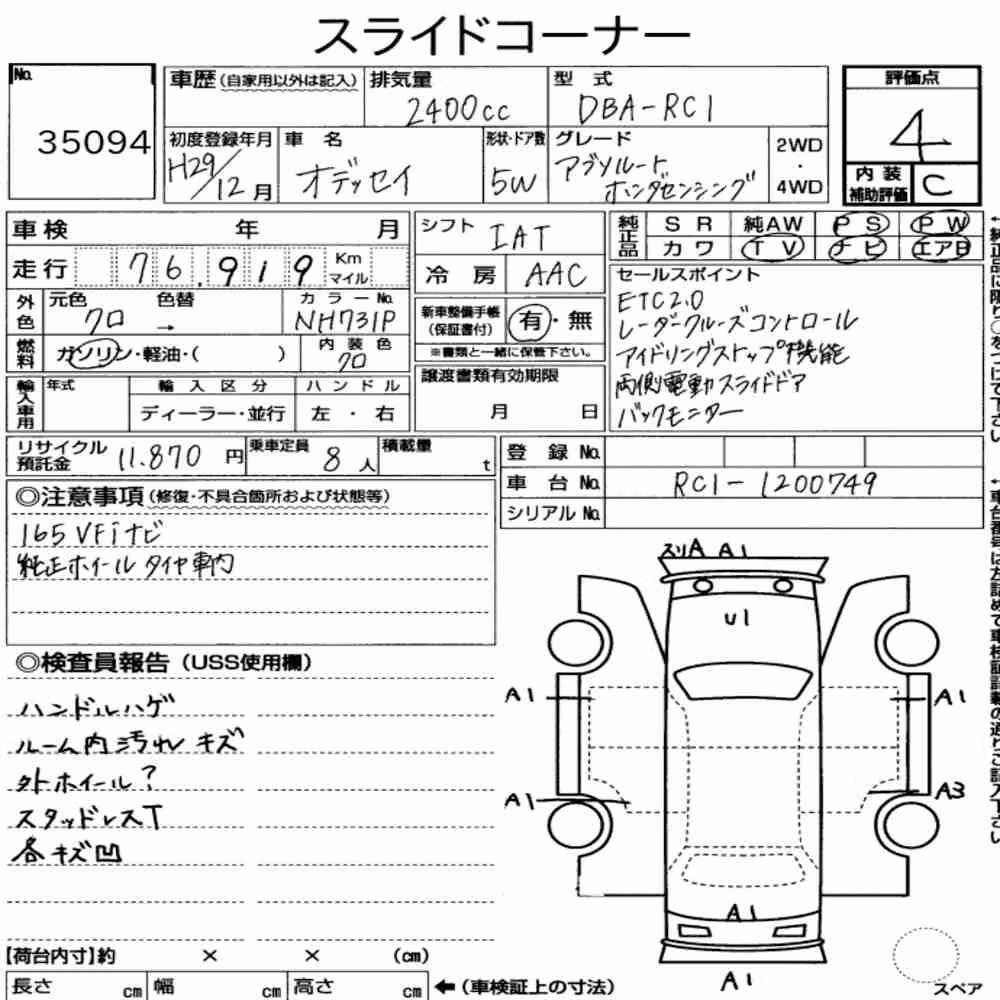 スライドコーナー
No.
35094
車歴(自家用以外は記入)
排気量
2400cc
型式
DBA-RC1
評価点
4
内装
補助評価
C
初度登録年月
H29/12月
車名
オデッセイ
形状・ドア数
5W
グレード
アブソルート
ホンダセンシング
2WD
・
4WD
車検 年 月
シフト
IAT
純正品
SR 純AW PS PW
カワ TV ナビ エアB
走行 76,919 Km マイル
冷房 AAC
セールスポイント
ETC2.0
レーダークルーズコントロール
アイドリングストップ機能
両側電動スライドドア
バックモニター
外色
元色 クロ
色替 →
カラーNo. NH731P
新車整備手帳
(保証書付)
有・無
※書類と一緒に保管下さい。
燃料
ガソリン・軽油・( )
内装色 クロ
譲渡書類有効期限
月 日
輸入車用
年式
輸入区分
ディーラー・並行
ハンドル
左・右
←純正品に限り○をつけて下さい
リサイクル
預託金 11.870円
乗車定員 8人
積載量 t
登録No.
車台No. RC1-1200749
シリアルNo.
◎注意事項(修復・不具合箇所および状態等)
165VFiナビ
純正ホイールタイヤ車内
←車台番号は左詰めで車検証記載の通りご記入下さい
◎検査員報告(USS使用欄)
ハンドルハゲ
ルーム内汚れ キズ
外ホイール?
スタッドレスT
各キズ凹
スリA A1
U1
A1
A1
A1
A3
A1
A1
スペア
【荷台内寸】約 × × (cm)
長さ cm 幅 cm 高さ cm ←(車検証上の寸法)